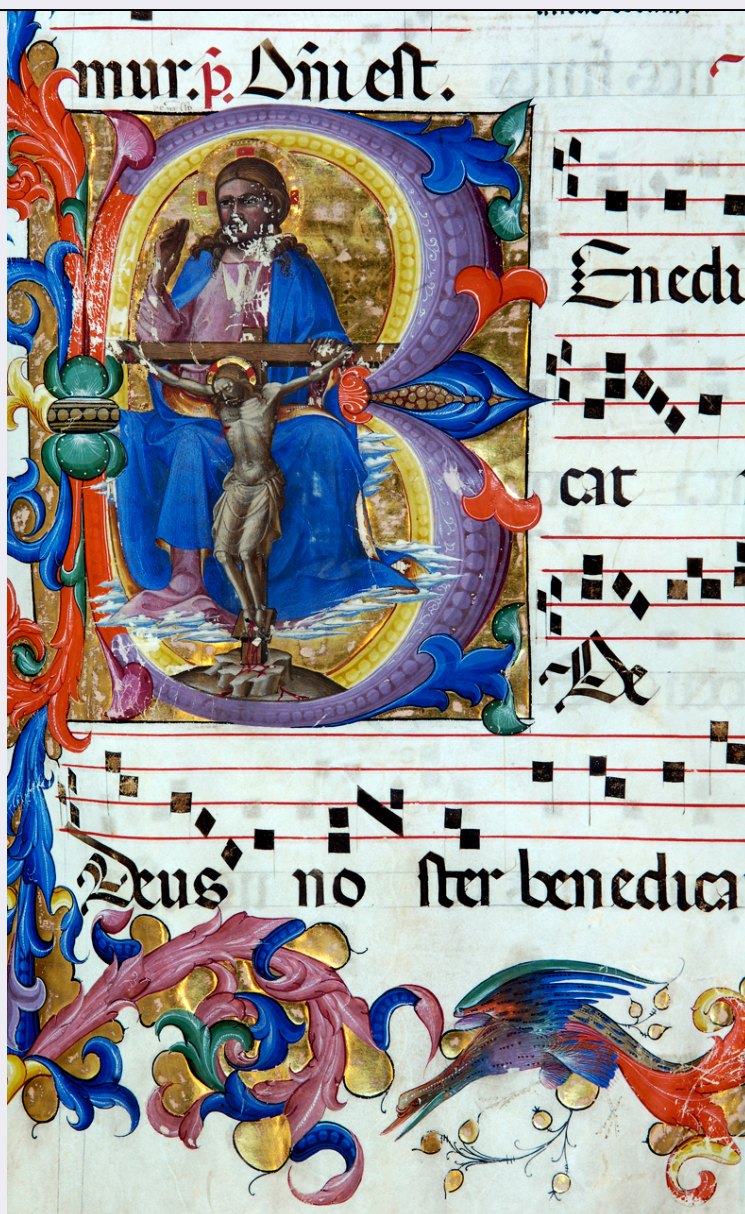 mur. p̄. Dn̄i est.
B Enedi
cat
De
Deus no ster benedica